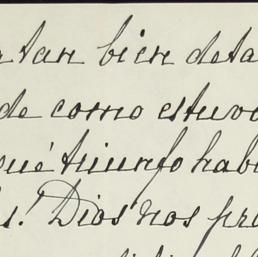 tan bien deta
de como estuvo
qué triunfo hab
s! Dios nos pro